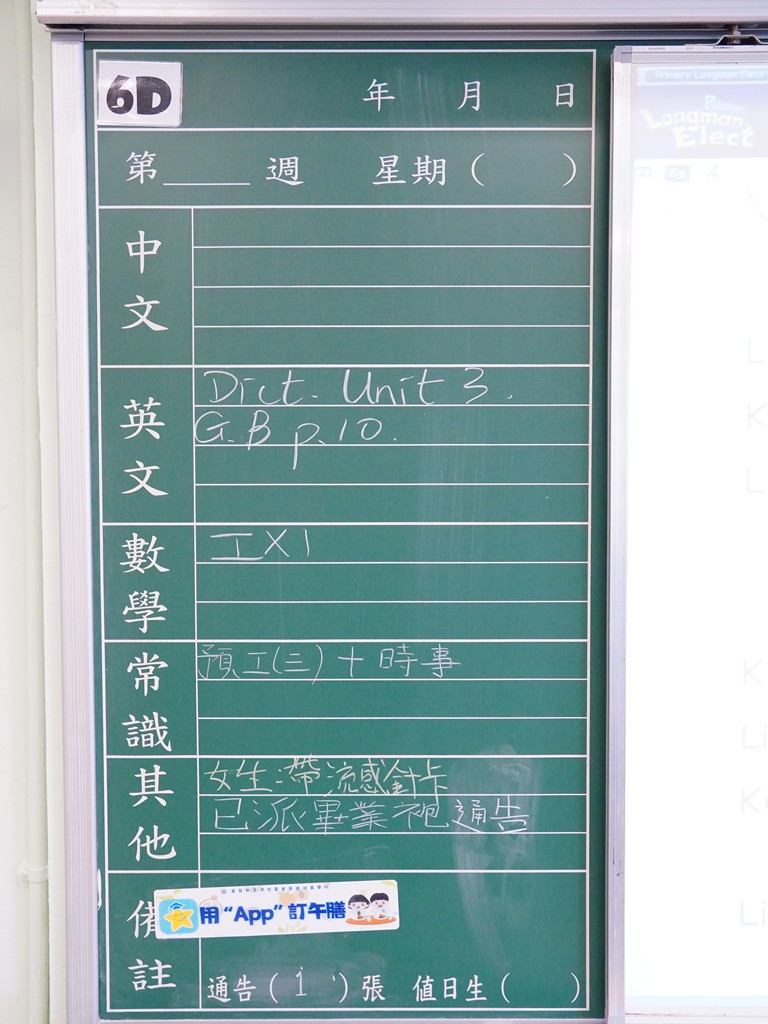 6D
年 月 日
第____週 星期( )
中文
英文
Dict. Unit 3.
G.B p.10.
數學
工X1
常識
預工(三)+時事
其他
女生:帶流感針卡
已派畢業袍通告
備註
用“App”訂午膳
通告(1)張 值日生( )
Primary Longman Elect
Longman
Elect